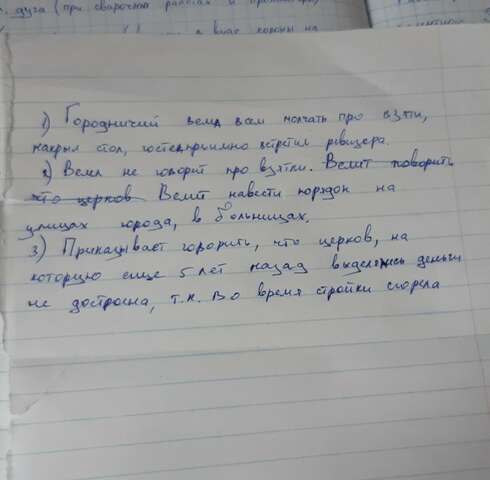 дуга (при сварочной работах и
в виде короны на
1) Городничий велел вам молчать про взятки,
накрыл стол, гостеприимно встретил ревизера.
2) Велел не говорит про взятки. Велит поворить
что церков Велит навести порядок на
улицах города, в больницах.
3) Приказывает говорить, что церков, на
которую еще 5 лет назад выделялись деньги
не достроена, т.к. во время стройки сгорела